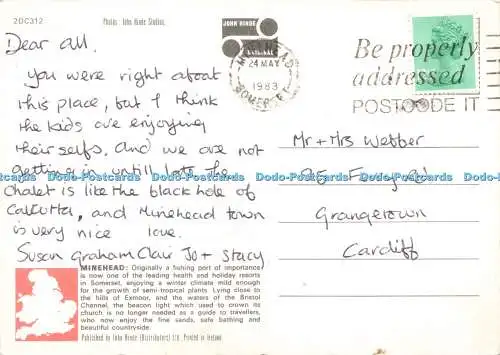 2DC312
Photos: John Hinde Studios.
JOHN HINDE
ORIGINAL
MINEHEAD
24 MAY
1983
SOMERSET
Be properly
addressed
POSTCODE IT
Dear all,
you were right about
this place, but I think
the kids are enjoying
their selfs, and we are not
getting in untill late the
chalet is like the black hole of
Calcutta, and Minehead town
is very nice love.
Susan Graham Clair Jo + Stacy
Mr + Mrs Webber
Rd
Grangetown
Cardiff
MINEHEAD: Originally a fishing port of importance
is now one of the leading health and holiday resorts
in Somerset, enjoying a winter climate mild enough
for the growth of semi-tropical plants. Lying close
to the hills of Exmoor, and the waters of the Bristol
Channel, the beacon light which used to crown its
church is no longer needed as a guide to travellers,
who now enjoy the fine sands, safe bathing and
beautiful countryside.
Published by John Hinde (Distributors) Ltd. Printed in Ireland
Dodo-Postcards Dodo-Postcards Dodo-Postcards Dodo-Postcards